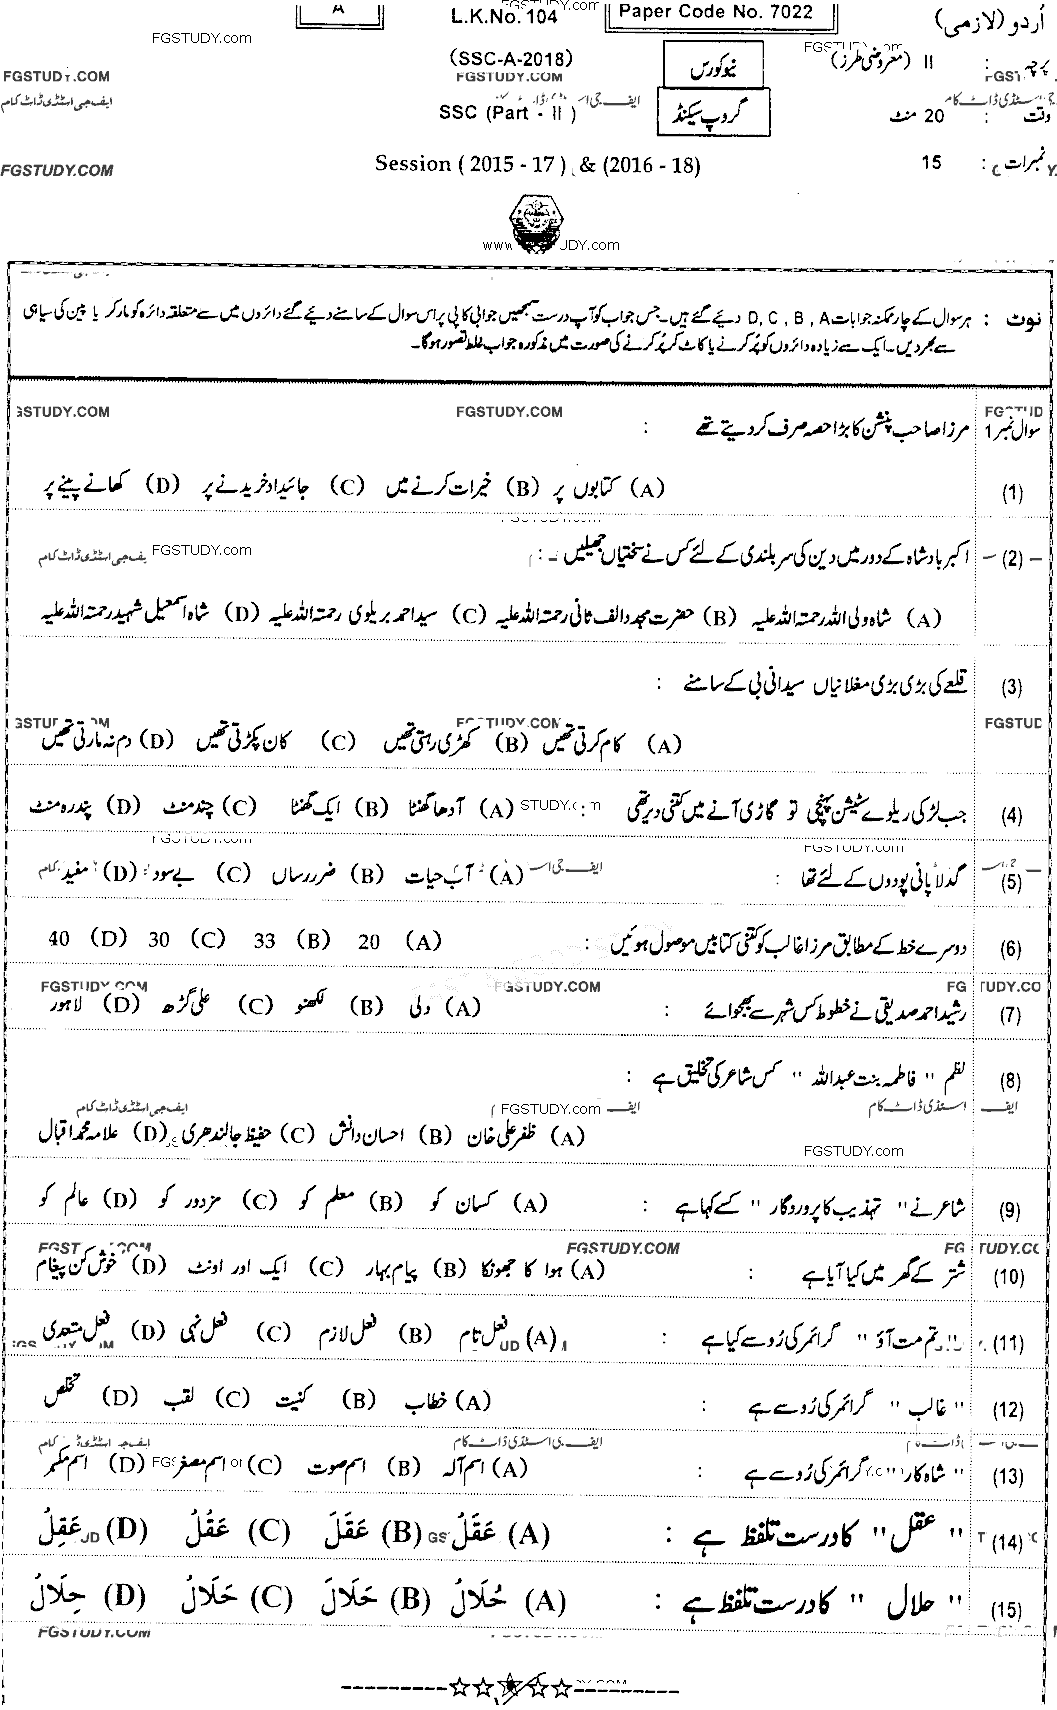 اُردو (لازمی) Paper Code No. 7022 L.K.No. 104 A
FGSTUDY.com
پرچہ : II (معروضی طرز) نیوکورس (SSC-A-2018)
FGSTUDY.COM FGSTUDY.COM
ایف جی اسٹڈی ڈاٹ کام
وقت : 20 منٹ گروپ سیکنڈ SSC (Part - II )
نمبرات : 15 Session ( 2015 - 17 ) & (2016 - 18)
FGSTUDY.COM
نوٹ : ہر سوال کے چار ممکنہ جوابات D, C , B , A دیئے گئے ہیں۔ جس جواب کو آپ درست سمجھیں جوابی کاپی پر اس سوال کے سامنے دیئے گئے دائروں میں سے متعلقہ دائرہ کو مارکر یا پین کی سیاہی
سے بھر دیں۔ ایک سے زیادہ دائروں کو پُر کرنے یا کاٹ کر پُر کرنے کی صورت میں مذکورہ جواب غلط تصور ہوگا۔
FGSTUDY.COM
سوال نمبر 1 مرزا صاحب پنشن کا بڑا حصہ صرف کر دیتے تھے :
(1) (A) کتابوں پر (B) خیرات کرنے میں (C) جائیداد خریدنے پر (D) کھانے پینے پر
FGSTUDY.com
(2) اکبر بادشاہ کے دور میں دین کی سربلندی کے لئے کس نے سختیاں جھیلیں :
(A) شاہ ولی اللہ رحمتہ اللہ علیہ (B) حضرت مجدد الف ثانی رحمتہ اللہ علیہ (C) سید احمد بریلوی رحمتہ اللہ علیہ (D) شاہ اسمعیل شہید رحمتہ اللہ علیہ
(3) قلعے کی بڑی بڑی مغلانیاں سیدانی بی کے سامنے :
(A) کام کرتی تھیں (B) کھڑی رہتی تھیں (C) کان پکڑتی تھیں (D) دم نہ مارتی تھیں
(4) جب لڑکی ریلوے سٹیشن پہنچی تو گاڑی آنے میں کتنی دیر تھی : (A) آدھا گھنٹا (B) ایک گھنٹا (C) چند منٹ (D) پندرہ منٹ
(5) گدلا پانی پودوں کے لئے تھا : (A) آب حیات (B) ضرر رساں (C) بے سود (D) مفید
(6) دوسرے خط کے مطابق مرزا غالب کو کتنی کتابیں موصول ہوئیں : (A) 20 (B) 33 (C) 30 (D) 40
FGSTUDY.COM FGSTUDY.COM
(7) رشید احمد صدیقی نے خطوط کس شہر سے بھجوائے : (A) دلی (B) لکھنو (C) علی گڑھ (D) لاہور
(8) نظم " فاطمہ بنت عبداللہ " کس شاعر کی تخلیق ہے :
FGSTUDY.com
(A) ظفر علی خان (B) احسان دانش (C) حفیظ جالندھری (D) علامہ محمد اقبال
FGSTUDY.com
(9) شاعر نے " تہذیب کا پروردگار " کسے کہا ہے : (A) کسان کو (B) معلم کو (C) مزدور کو (D) عالم کو
FGSTUDY.COM
(10) شتر کے گھر میں کیا آیا ہے : (A) ہوا کا جھونکا (B) پیام بہار (C) ایک اور اونٹ (D) خوش کن پیغام
(11) " تم مت آؤ " گرائمر کی رُو سے کیا ہے : (A) فعل تام (B) فعل لازم (C) فعل نہی (D) فعل متعدی
(12) " غالب " گرائمر کی رُو سے ہے : (A) خطاب (B) کنیت (C) لقب (D) تخلص
(13) " شاہ کار " گرائمر کی رُو سے ہے : (A) اسم آلہ (B) اسم صوت (C) اسم مصغر (D) اسم مکبر
(14) " عقل " کا درست تلفظ ہے : (A) عَقَلُ (B) عَقَلَ (C) عَقُلُ (D) عَقِلُ
(15) " حلال " کا درست تلفظ ہے : (A) حُلَالُ (B) حَلَالَ (C) حَلَالُ (D) حِلَالُ
FGSTUDY.COM